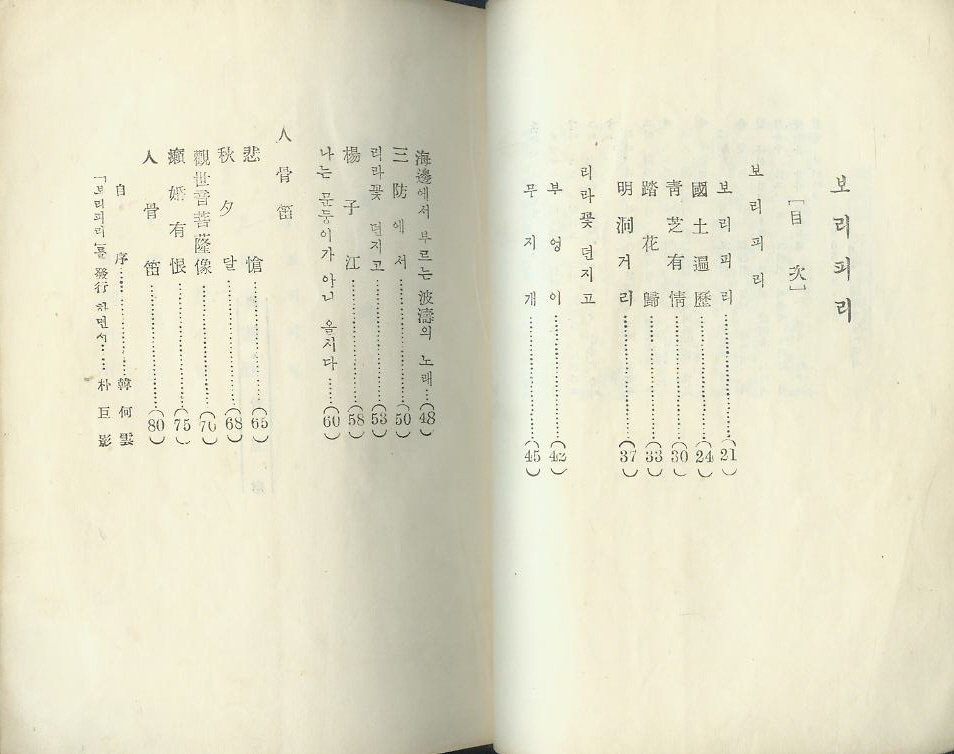 보리피리
[目次]
보리피리
보리피리……(21)
國土遍歷……(24)
靑芝有情……(30)
踏花歸……(33)
明洞거리……(37)
리라꽃 던지고
부엉이……(42)
무지개……(45)
海邊에서 부르는 波濤의 노래……(48)
三防에서……(50)
리라꽃 던지고……(53)
楊子江……(58)
나는 문둥이가 아니 올시다……(60)
人骨笛
悲愴……(65)
秋夕달……(68)
觀世音菩薩像……(70)
癩婚有恨……(75)
人骨笛……(80)
自序……韓何雲
「보리피리」를 發行하면서……朴巨影